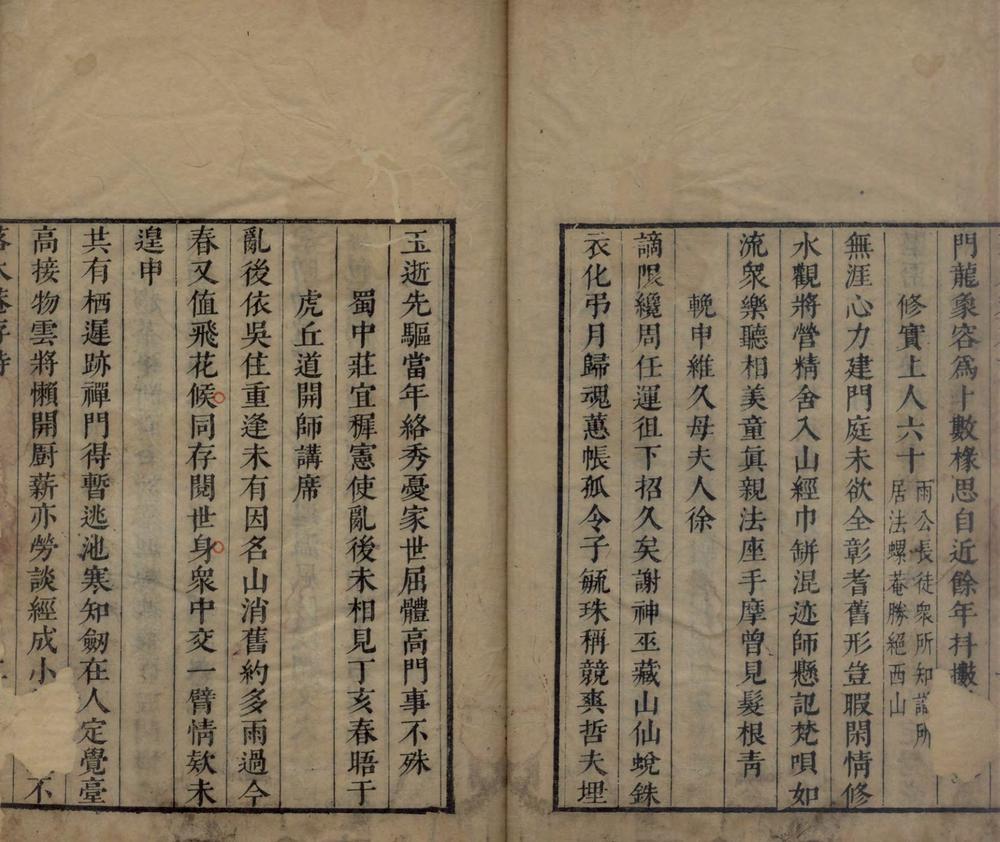 門龍象容爲十數椽思自近餘年抖擻
修實上人六十
雨公長徒衆所知識所
居法螺菴勝絕西山
無涯心力建門庭未欲全彰耆舊形豈暇閑情修
水觀將營精舍入山經巾缾混迹師懸記梵唄如
流衆樂聽相美童眞親法座手摩曾見髮根靑
輓申維久母夫人徐
謫限纔周任運徂下招久矣謝神巫藏山仙蛻銖
衣化弔月歸魂蕙帳孤令子毓珠稱競爽哲夫埋
玉逝先驅當年絡秀憂家世屈體高門事不殊
蜀中莊宜穉憲使亂後未相見丁亥春晤于
虎丘道開師講席
亂後依吳住重逢未有因名山消舊約多雨過今
春又值飛花候同存閱世身衆中交一臂情欵未
遑申
共有栖遲跡禪門得暫逃池寒知劒在人定覺臺
高接物雲將懶開厨薪亦勞談經成小 不
落木菴存詩